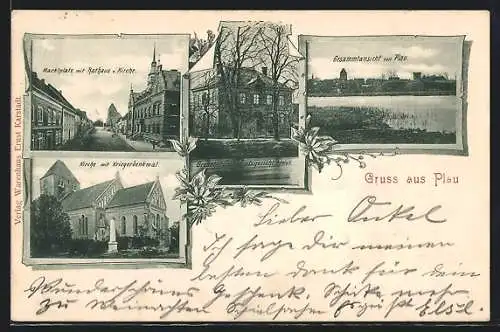 Marktplatz mit Rathaus u. Kirche.
Gesammtansicht von Plau.
Kirche mit Kriegerdenkmal.
Verlag Warenhaus Ernst Karstadt.
Gruss aus Plau
Lieber Onkel
Ich sage dir meinen
besten Dank für dein
Wunderschönes Geschenk. Schike mehr
zu Weinachten Spielsachen